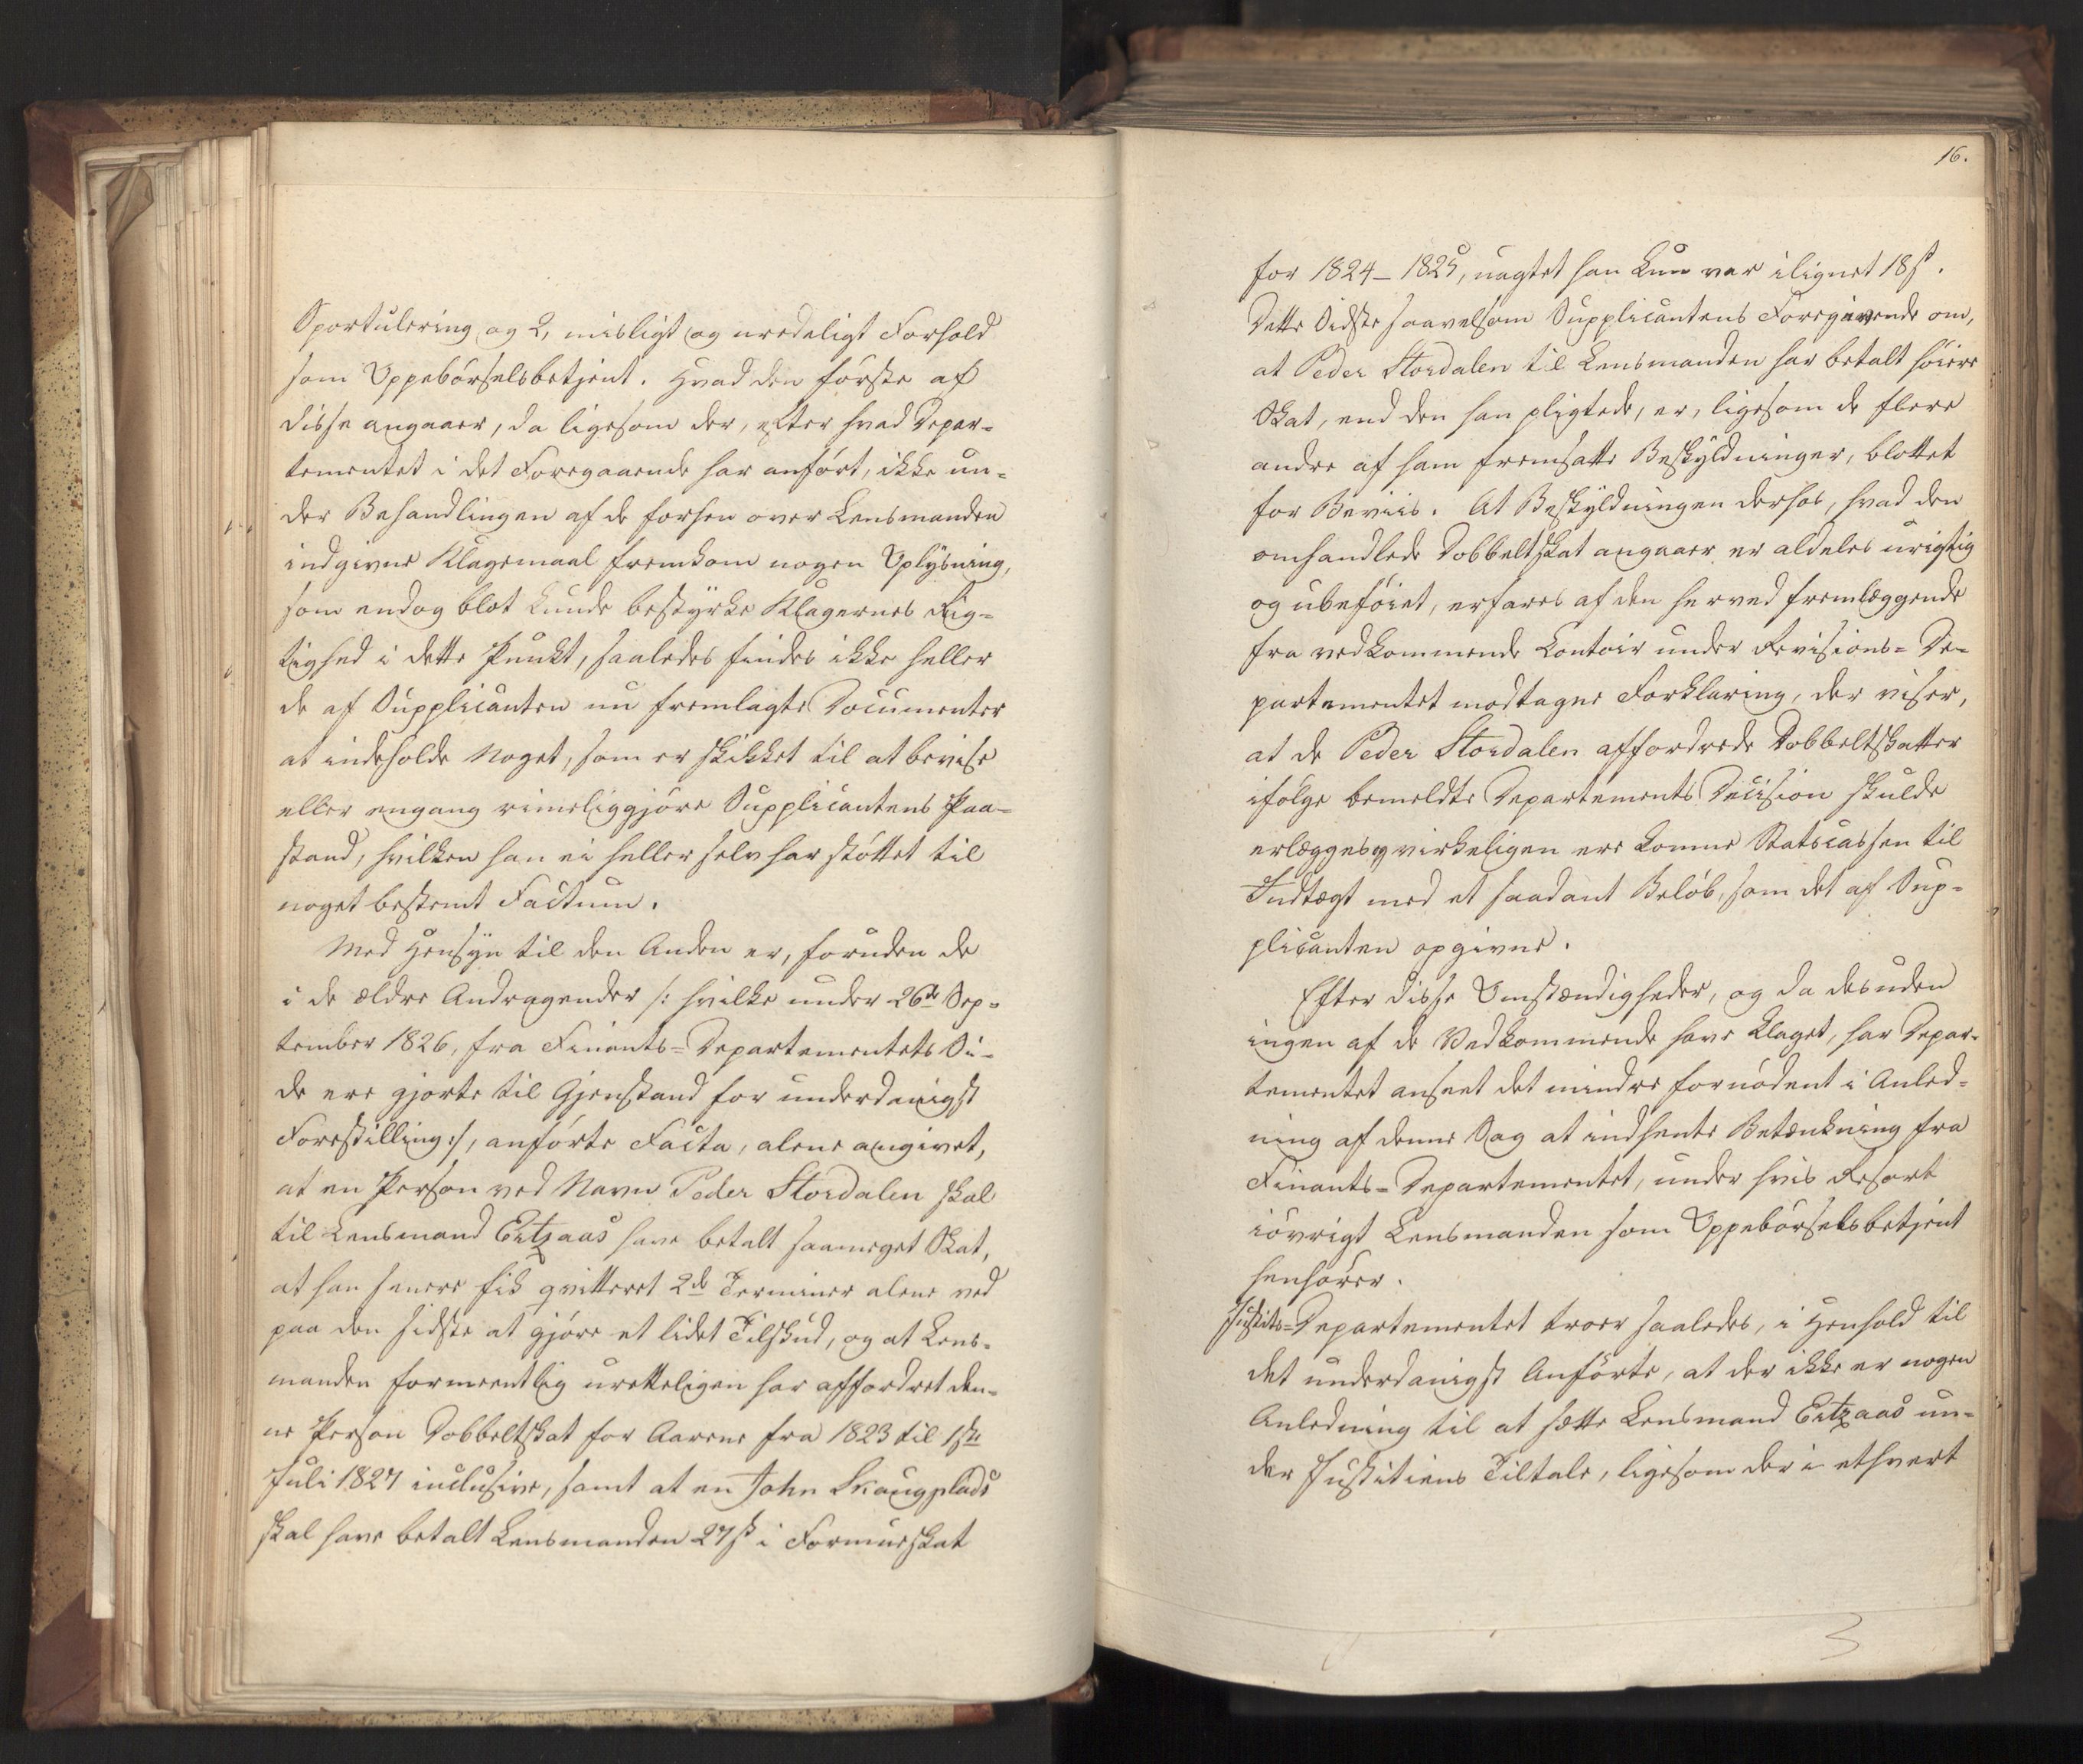 Sportulering og 2, misligt og uredeligt Forhold
som Oppebørselsbetjent. Hvad den første af
disse angaaer, da ligesom der, efter hvad Depar-
tementet i det Foregaaende har anført, ikke un-
der Behandlingen af de forhen over Lensmanden
indgivne Klagemaal fremkom nogen Oplysning,
som endog blot kunde bestyrke Klagernes Rig-
tighed i dette Punkt, saaledes findes ikke heller
de af Supplicanten nu fremlagte Documenter
at indeholde Noget, som er skikket til at bevise
eller engang rimeliggjøre Supplicantens Paa-
stand, hvilken han ei heller selv har støttet til
noget bestemt Factum.
Med Hensyn til den Anden er, foruden de
i de ældre Andragender /: hvilke under 26de Sep-
tember 1826, fra Finants-Departementets Si-
de ere gjorte til Gjenstand for underdanigst
Forestilling :/, anførte Facta, alene angivet,
at en Person ved Navn Peder Stordalen skal
til Lensmand Ertzaas have betalt saameget Skat,
at han senere fik qvitteret 2de Terminer alene ved
paa den sidste at gjøre et lidet Tilskud, og at Lens-
manden formeentlig uretteligen har affordret den-
ne Person Dobbeltskat for Aarene fra 1823 til 1ste
Juli 1827 inclusive, samt at en John Skaugplads
skal have betalt Lensmanden 27 ß i Formueskat
16.
for 1824-1825, uagtet han kun var ilignet 18 ß.
Dette Sidste saavelsom Supplicantens Foregivende om,
at Peder Stordalen til Lensmanden har betalt høiere
Skat, end den han pligtede, er, ligesom de flere
andre af ham fremsatte Beskyldninger, blottet
for Beviis. At Beskyldningen derhos, hvad den
omhandlede Dobbeltskat angaaer er aldeles urigtig
og ubeføiet, erfares af den herved fremlæggende
fra vedkommende Contoir under Revisions-De-
partementet modtagne Forklaring, der viser,
at de Peder Stordalen affordrede Dobbeltskatter
ifølge bemeldte Departements Decision skulde
erlægges og virkeligen ere komne Statscassen til
Indtægt med et saadant Beløb, som det af Sup-
plicanten opgivne.
Efter disse Omstændigheder, og da desuden
ingen af de Vedkommende have klaget, har Depar-
tementet anseet det mindre fornødent i Anled-
ning af denne Sag at indhente Betænkning fra
Finants-Departementet, under hvis Resort
iøvrigt Lensmanden som Oppebørselsbetjent
henhører.
Justits-Departementet troer saaledes, i Henhold til
det underdanigst Anførte, at der ikke er nogen
Anledning til at sætte Lensmand Ertzaas un-
der Justitiens Tiltale, ligesom der i ethvert
3